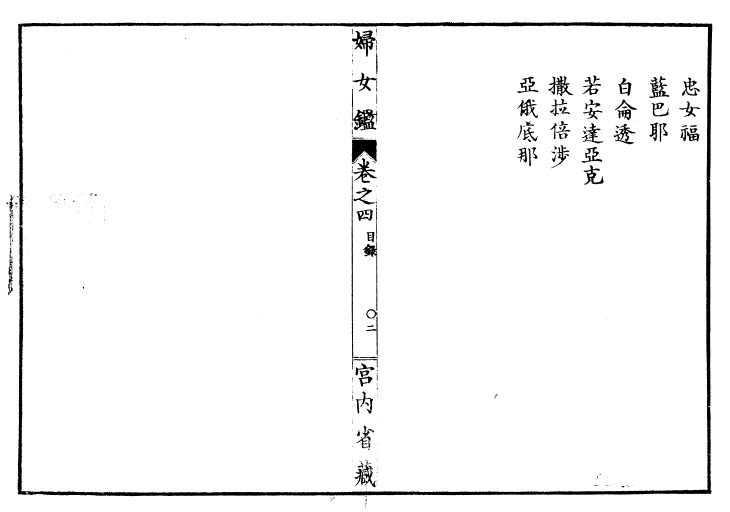 忠女福
藍巴耶
白侖透
若安達亞克
撒拉倍涉
亞俄底那
婦女鑑
卷之四
目錄
〇二
宮內省藏